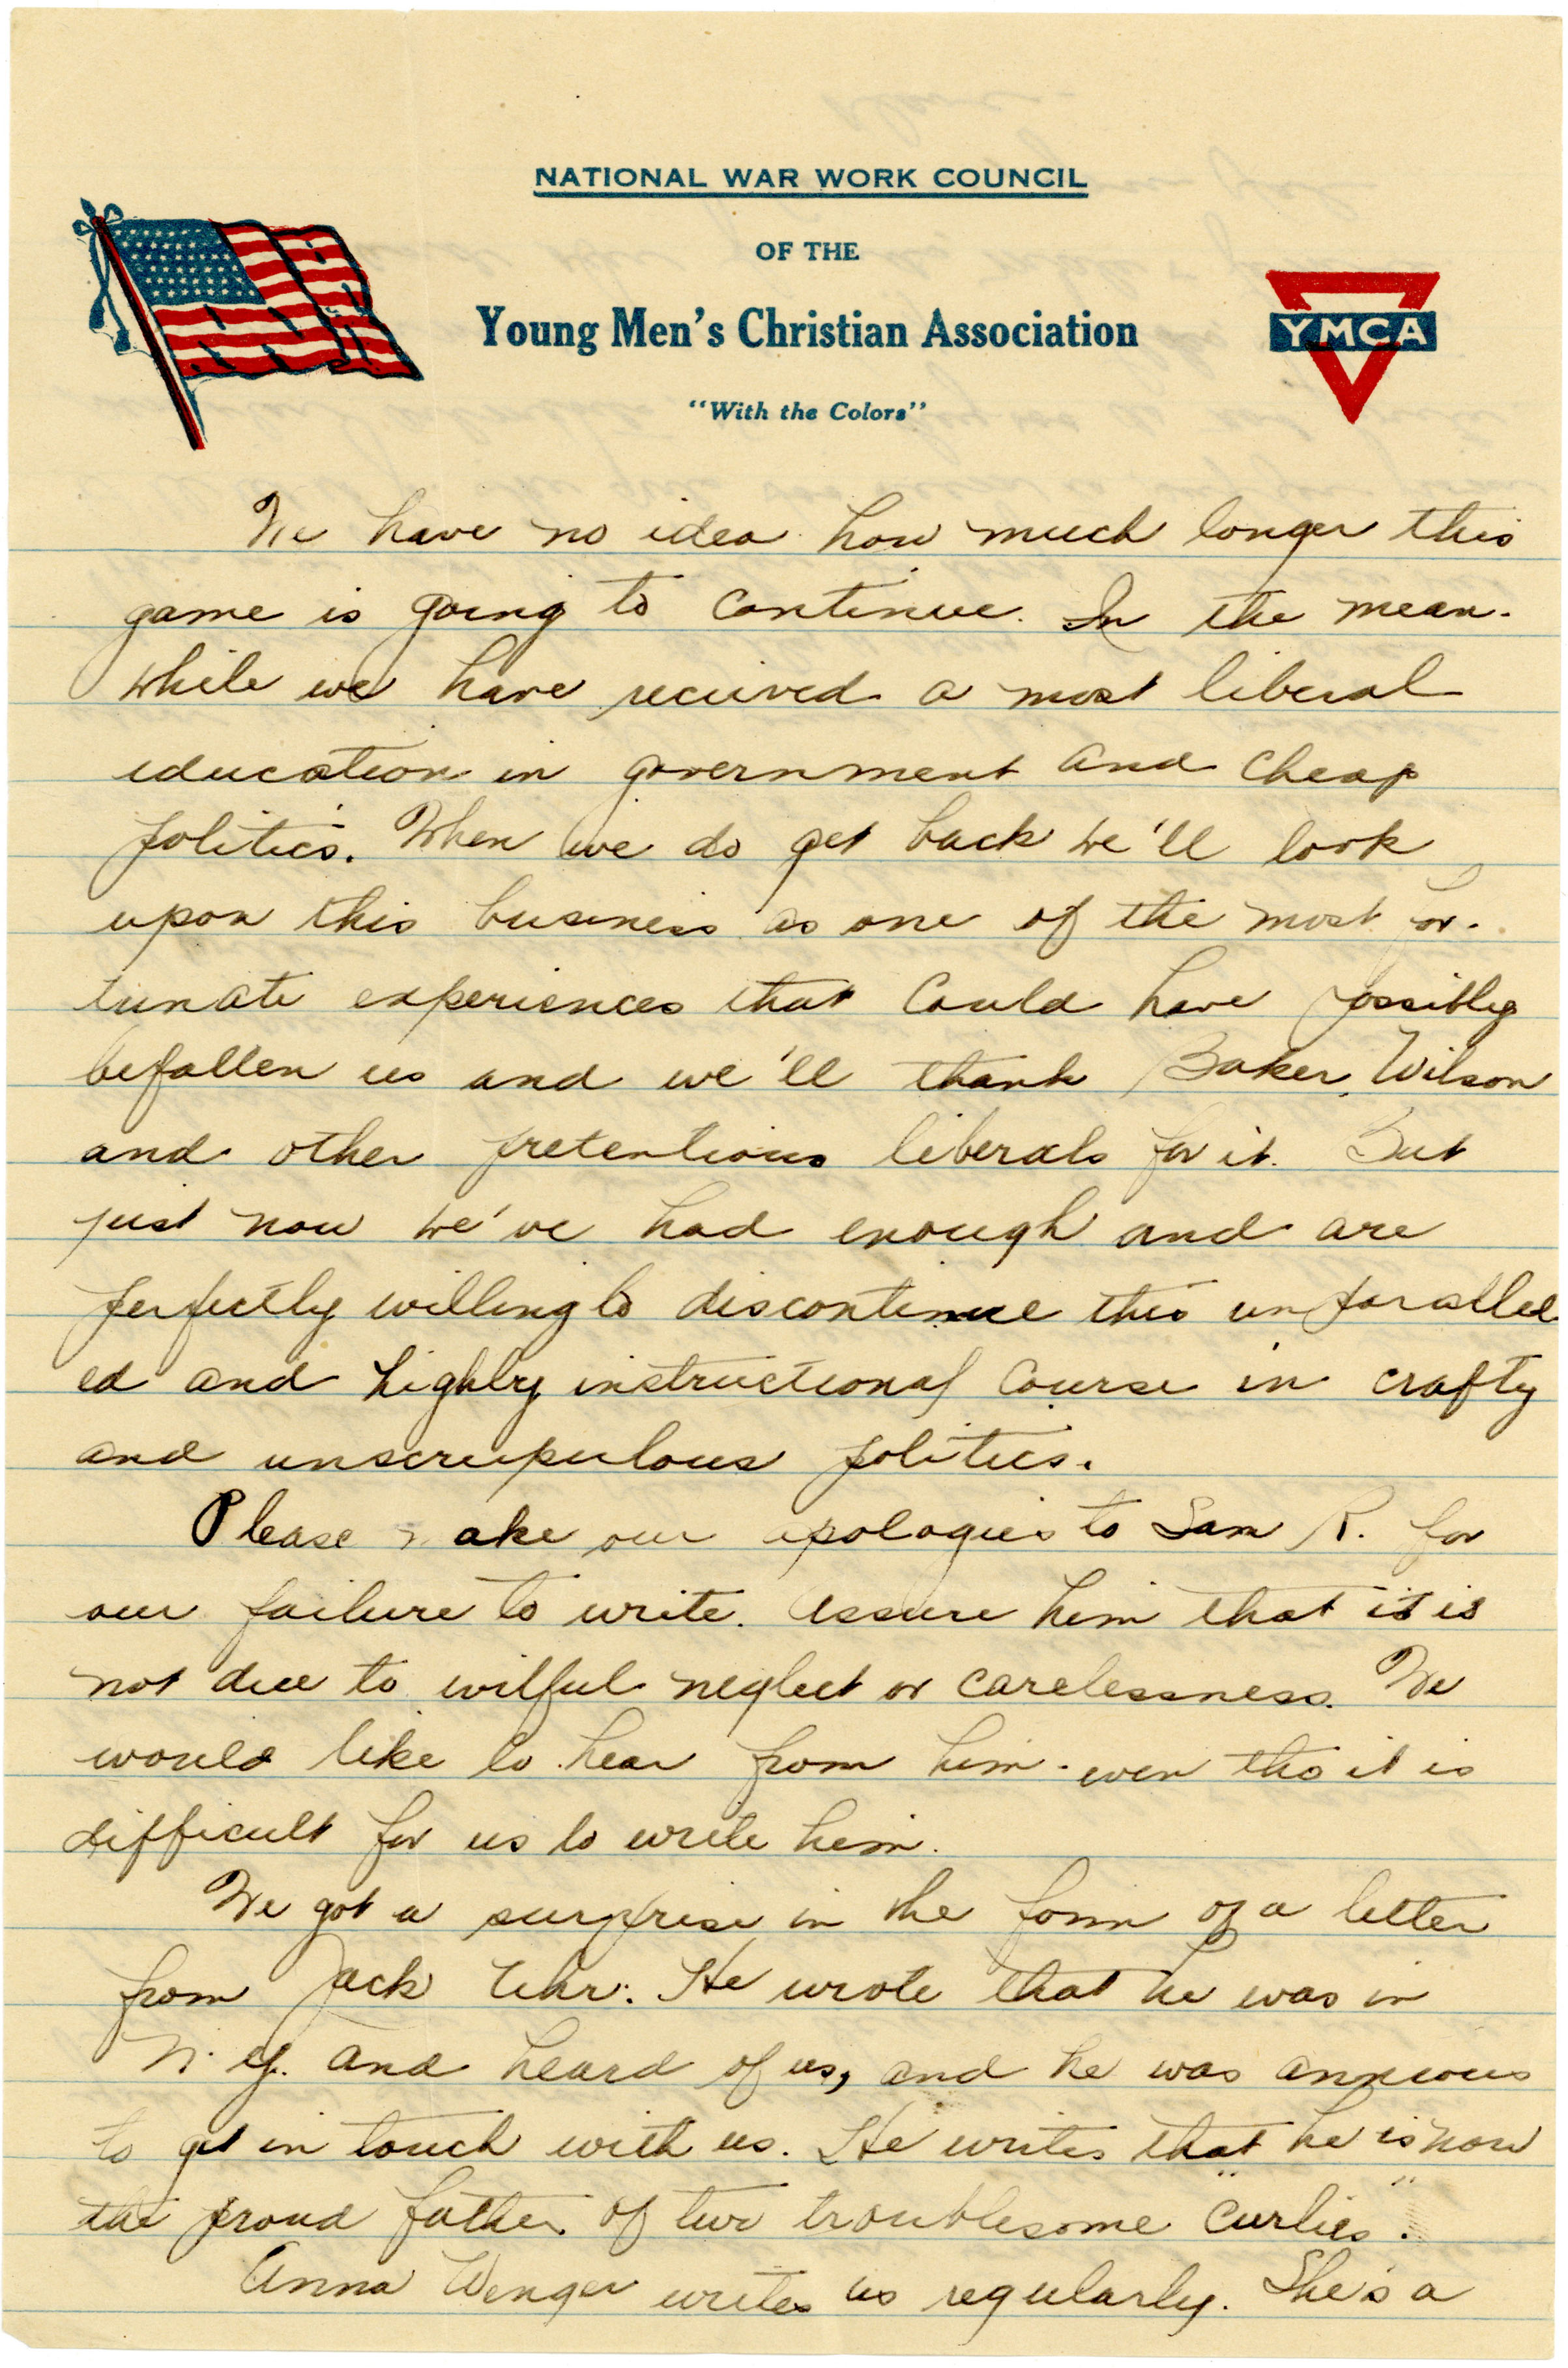 NATIONAL WAR WORK COUNCIL
OF THE
Young Men's Christian Association
"With the Colors"
YMCA
We have no idea how much longer this
game is going to continue. In the mean-
while we have received a most liberal
education in government and cheap
politics. When we do get back we'll look
upon this business as one of the most for-
tunate experiences that could have possibly
befallen us and we'll thank Baker, Wilson
and other pretentious liberals for it. But
just now we've had enough and are
perfectly willing to discontinue this unparallel
ed and highly instructional course in crafty
and unscrupulous politics.
Please make our apologies to Sam R. for
our failure to write. Assure him that it is
not due to wilful neglect or carelessness. We
would like to hear from him - even tho it is
difficult for us to write him.
We got a surprise in the form of a letter
from Jack He wrote that he was in
N.Y. and heard of us, and he was anxious
to get in touch with us. He writes that he is now
the proud father of two troublesome "curlies".
Anna Wenger writes us regularly. She's a